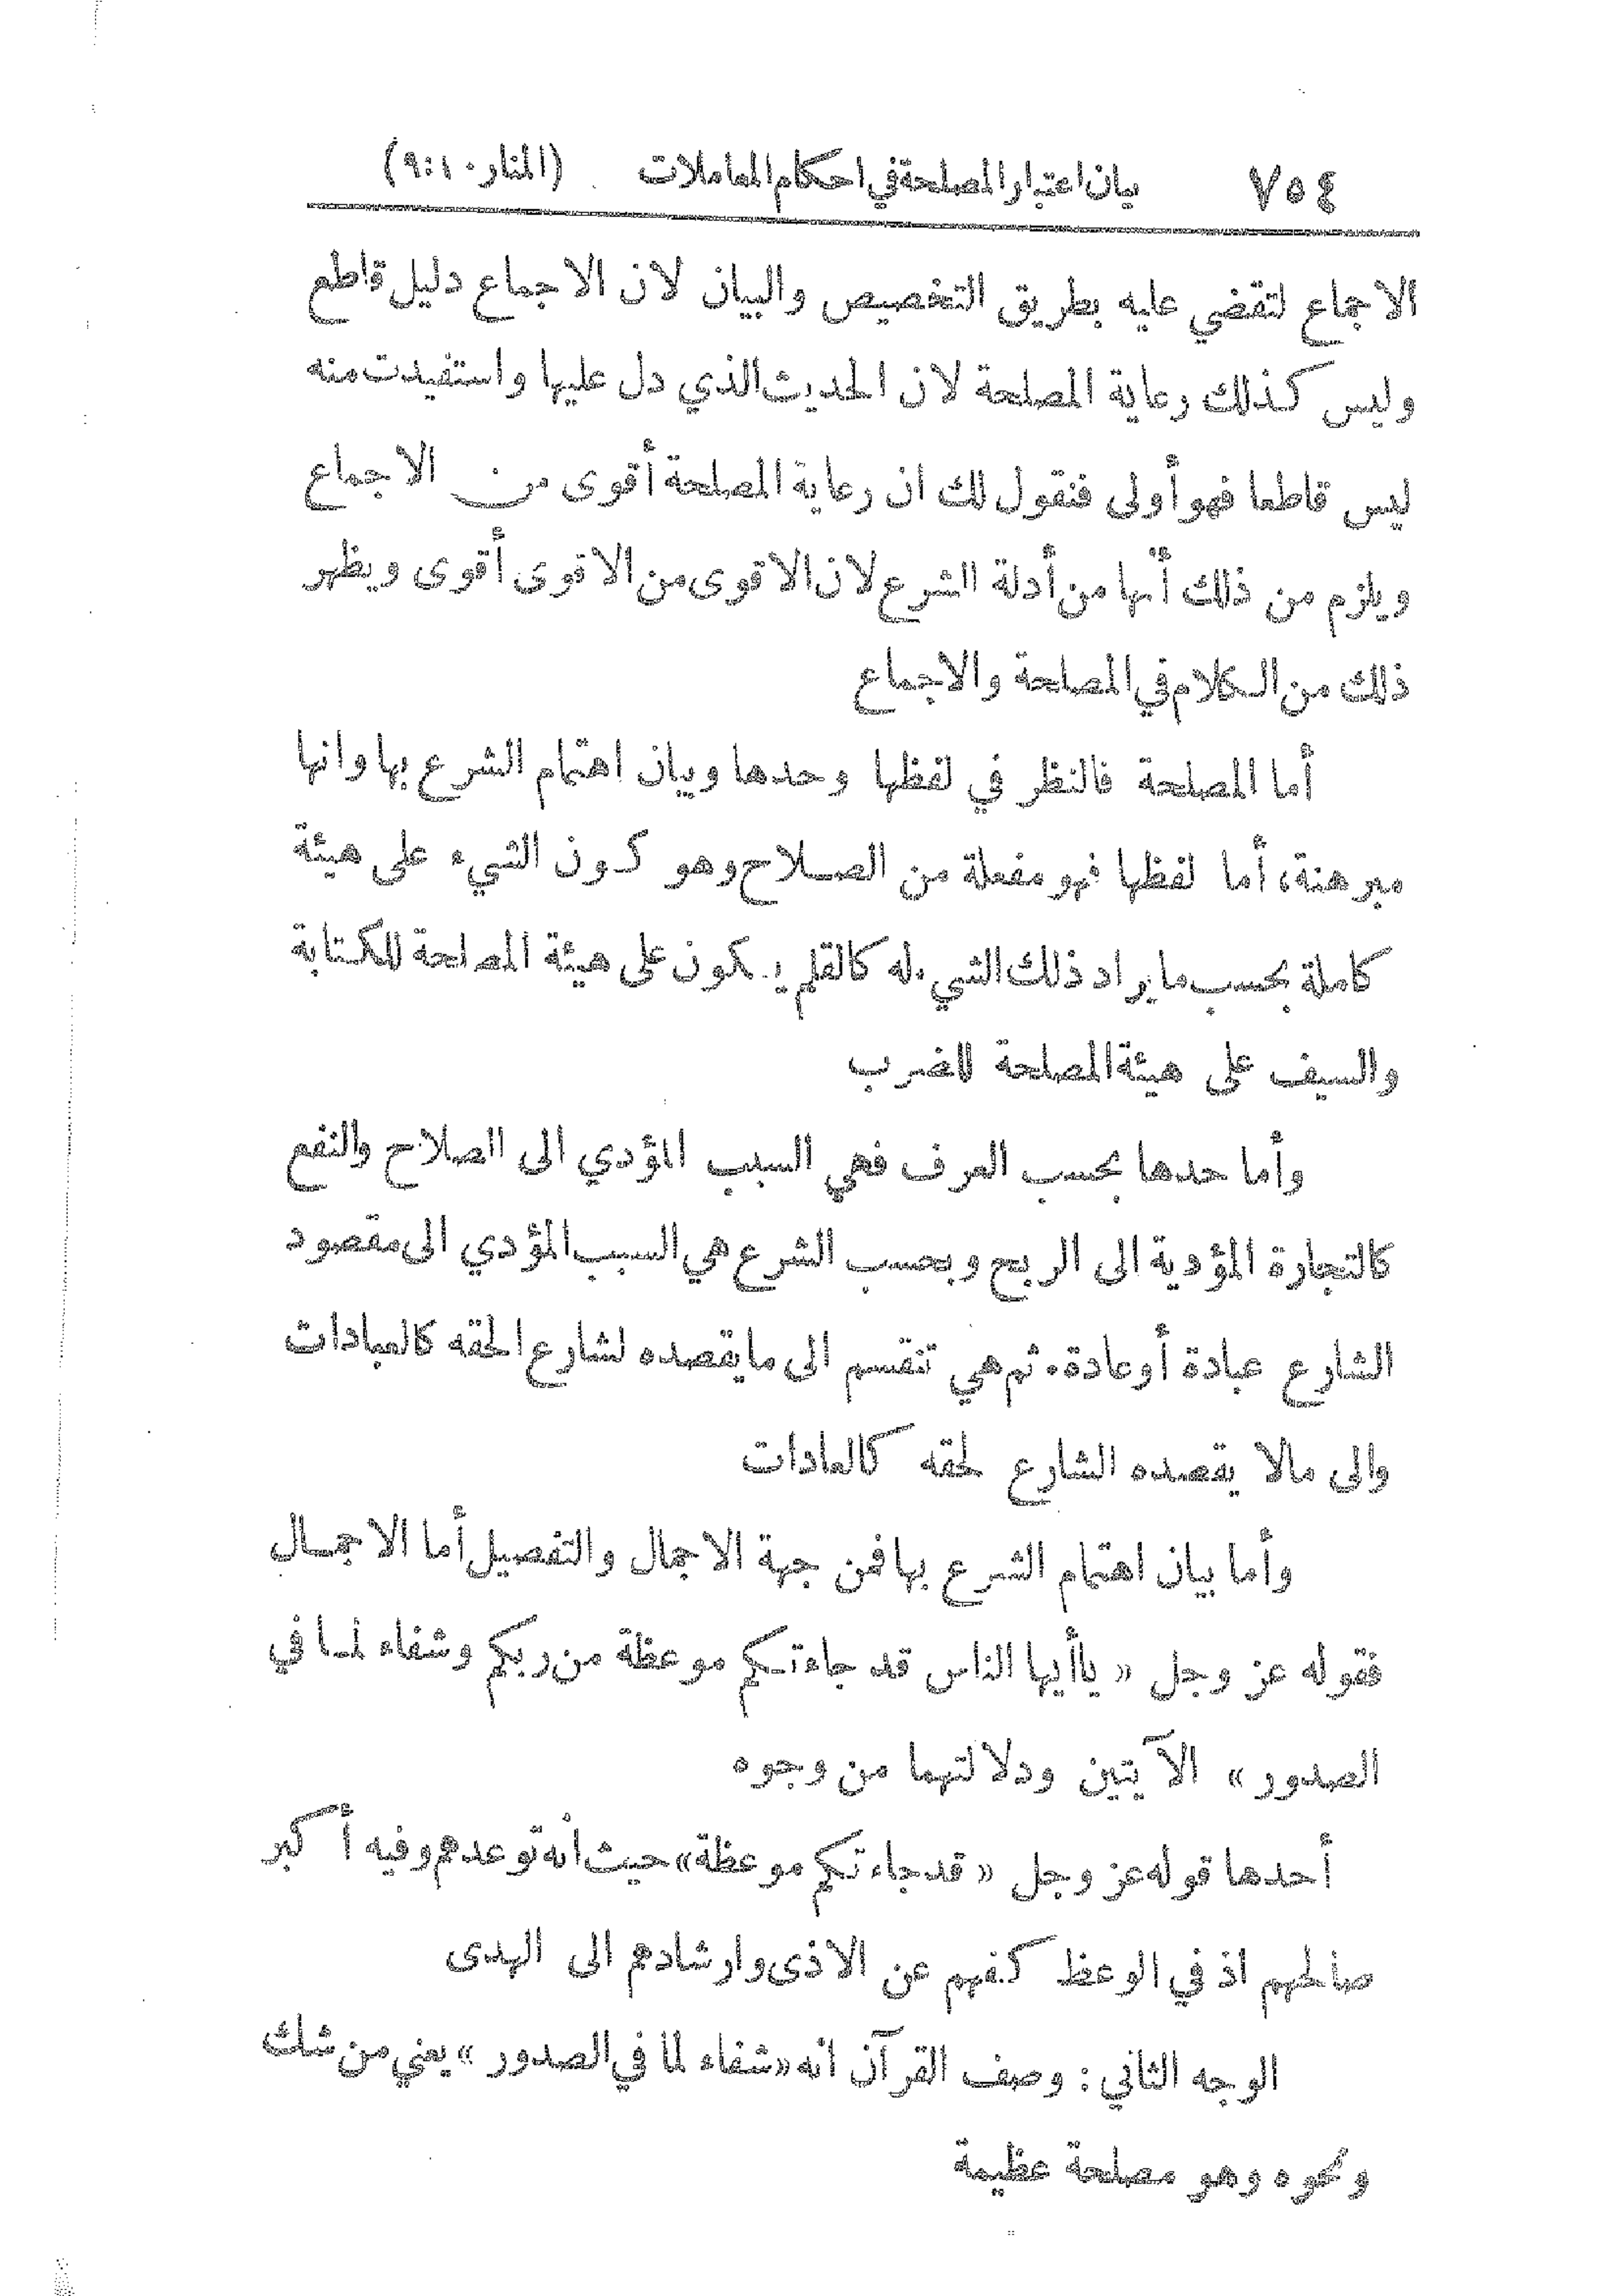 ٧٥٤ بيان اعتبار المصلحة في احكام المعاملات (المنار ١٠:٩)
الاجماع لتقضي عليه بطريق التخصيص والبيان لان الاجماع دليل قاطع
وليس كذلك رعاية المصلحة لان الحديث الذي دل عليها واستفيدت منه
ليس قاطعا فهو أولى فنقول لك ان رعاية المصلحة أقوى من الاجماع
ويلزم من ذلك أنها من أدلة الشرع لان الاقوى من الاقوى أقوى ويظهر
ذلك من الكلام في المصلحة والاجماع
أما المصلحة فالنظر في لفظها وحدها وبيان اهتمام الشرع بها وانها
مبرهنة، أما لفظها فهو مفعلة من الصلاح وهو كون الشيء على هيئة
كاملة بحسب ما يراد ذلك الشيء له كالقلم يكون على هيئة المصلحة للكتابة
والسيف على هيئة المصلحة للضرب
وأما حدها بحسب العرف فهي السبب المؤدي الى الصلاح والنفع
كالتجارة المؤدية الى الربح وبحسب الشرع هي السبب المؤدي الى مقصود
الشارع عبادة أو عادة. ثم هي تنقسم الى ما يقصده لشارع الحقه كالعبادات
والى مالا يقصده الشارع لحقه كالعادات
وأما بيان اهتمام الشرع بها فمن جهة الاجمال والتفصيل أما الاجمال
فقوله عز وجل « ياأيها الناس قد جاءتكم موعظة من ربكم وشفاء لما في
الصدور » الآيتين ودلالتهما من وجوه
أحدها قوله عز وجل « قد جاءتكم موعظة» حيث أنه توعدهم وفيه أكبر
صالحهم اذ في الوعظ كفهم عن الاذى وارشادهم الى الهدى
الوجه الثاني : وصف القرآن انه «شفاء لما في الصدور » يعني من شك
ونحوه وهو مصلحة عظيمة